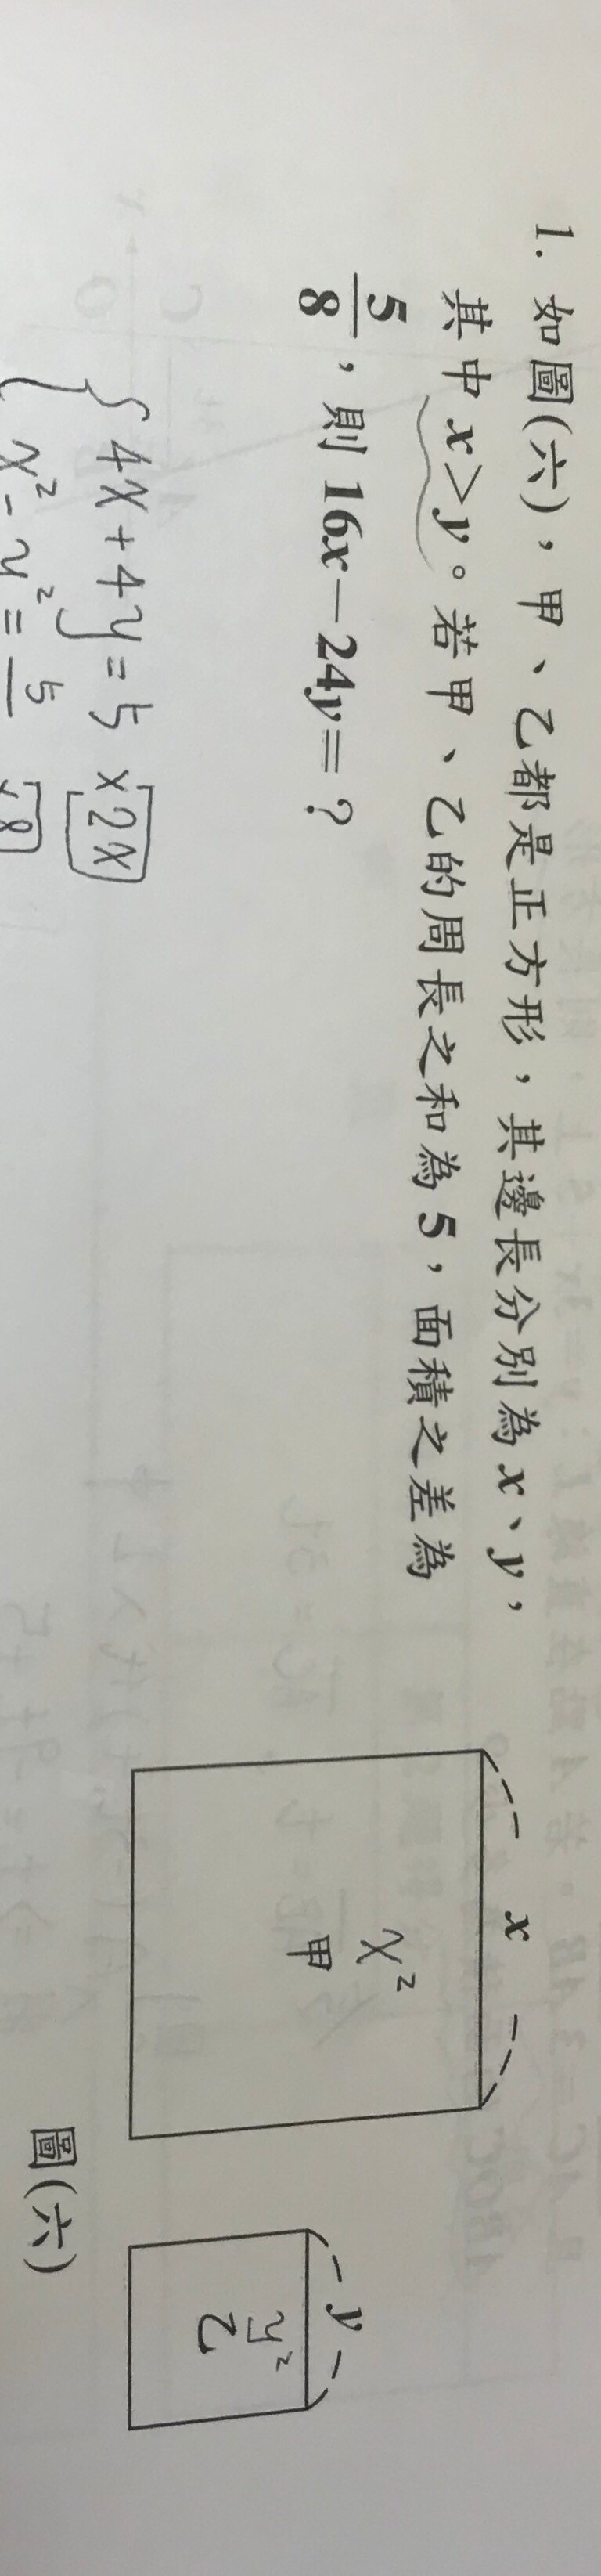 1. 如圖(六)，甲、乙都是正方形，其邊長分別為 x、y，
其中 x>y。若甲、乙的周長之和為 5，面積之差為
5/8，則 16x－24y=？
x
x²
甲
y
y²
乙
圖(六)
4x+4y=5 ×2x
x²-y²=5 ×8